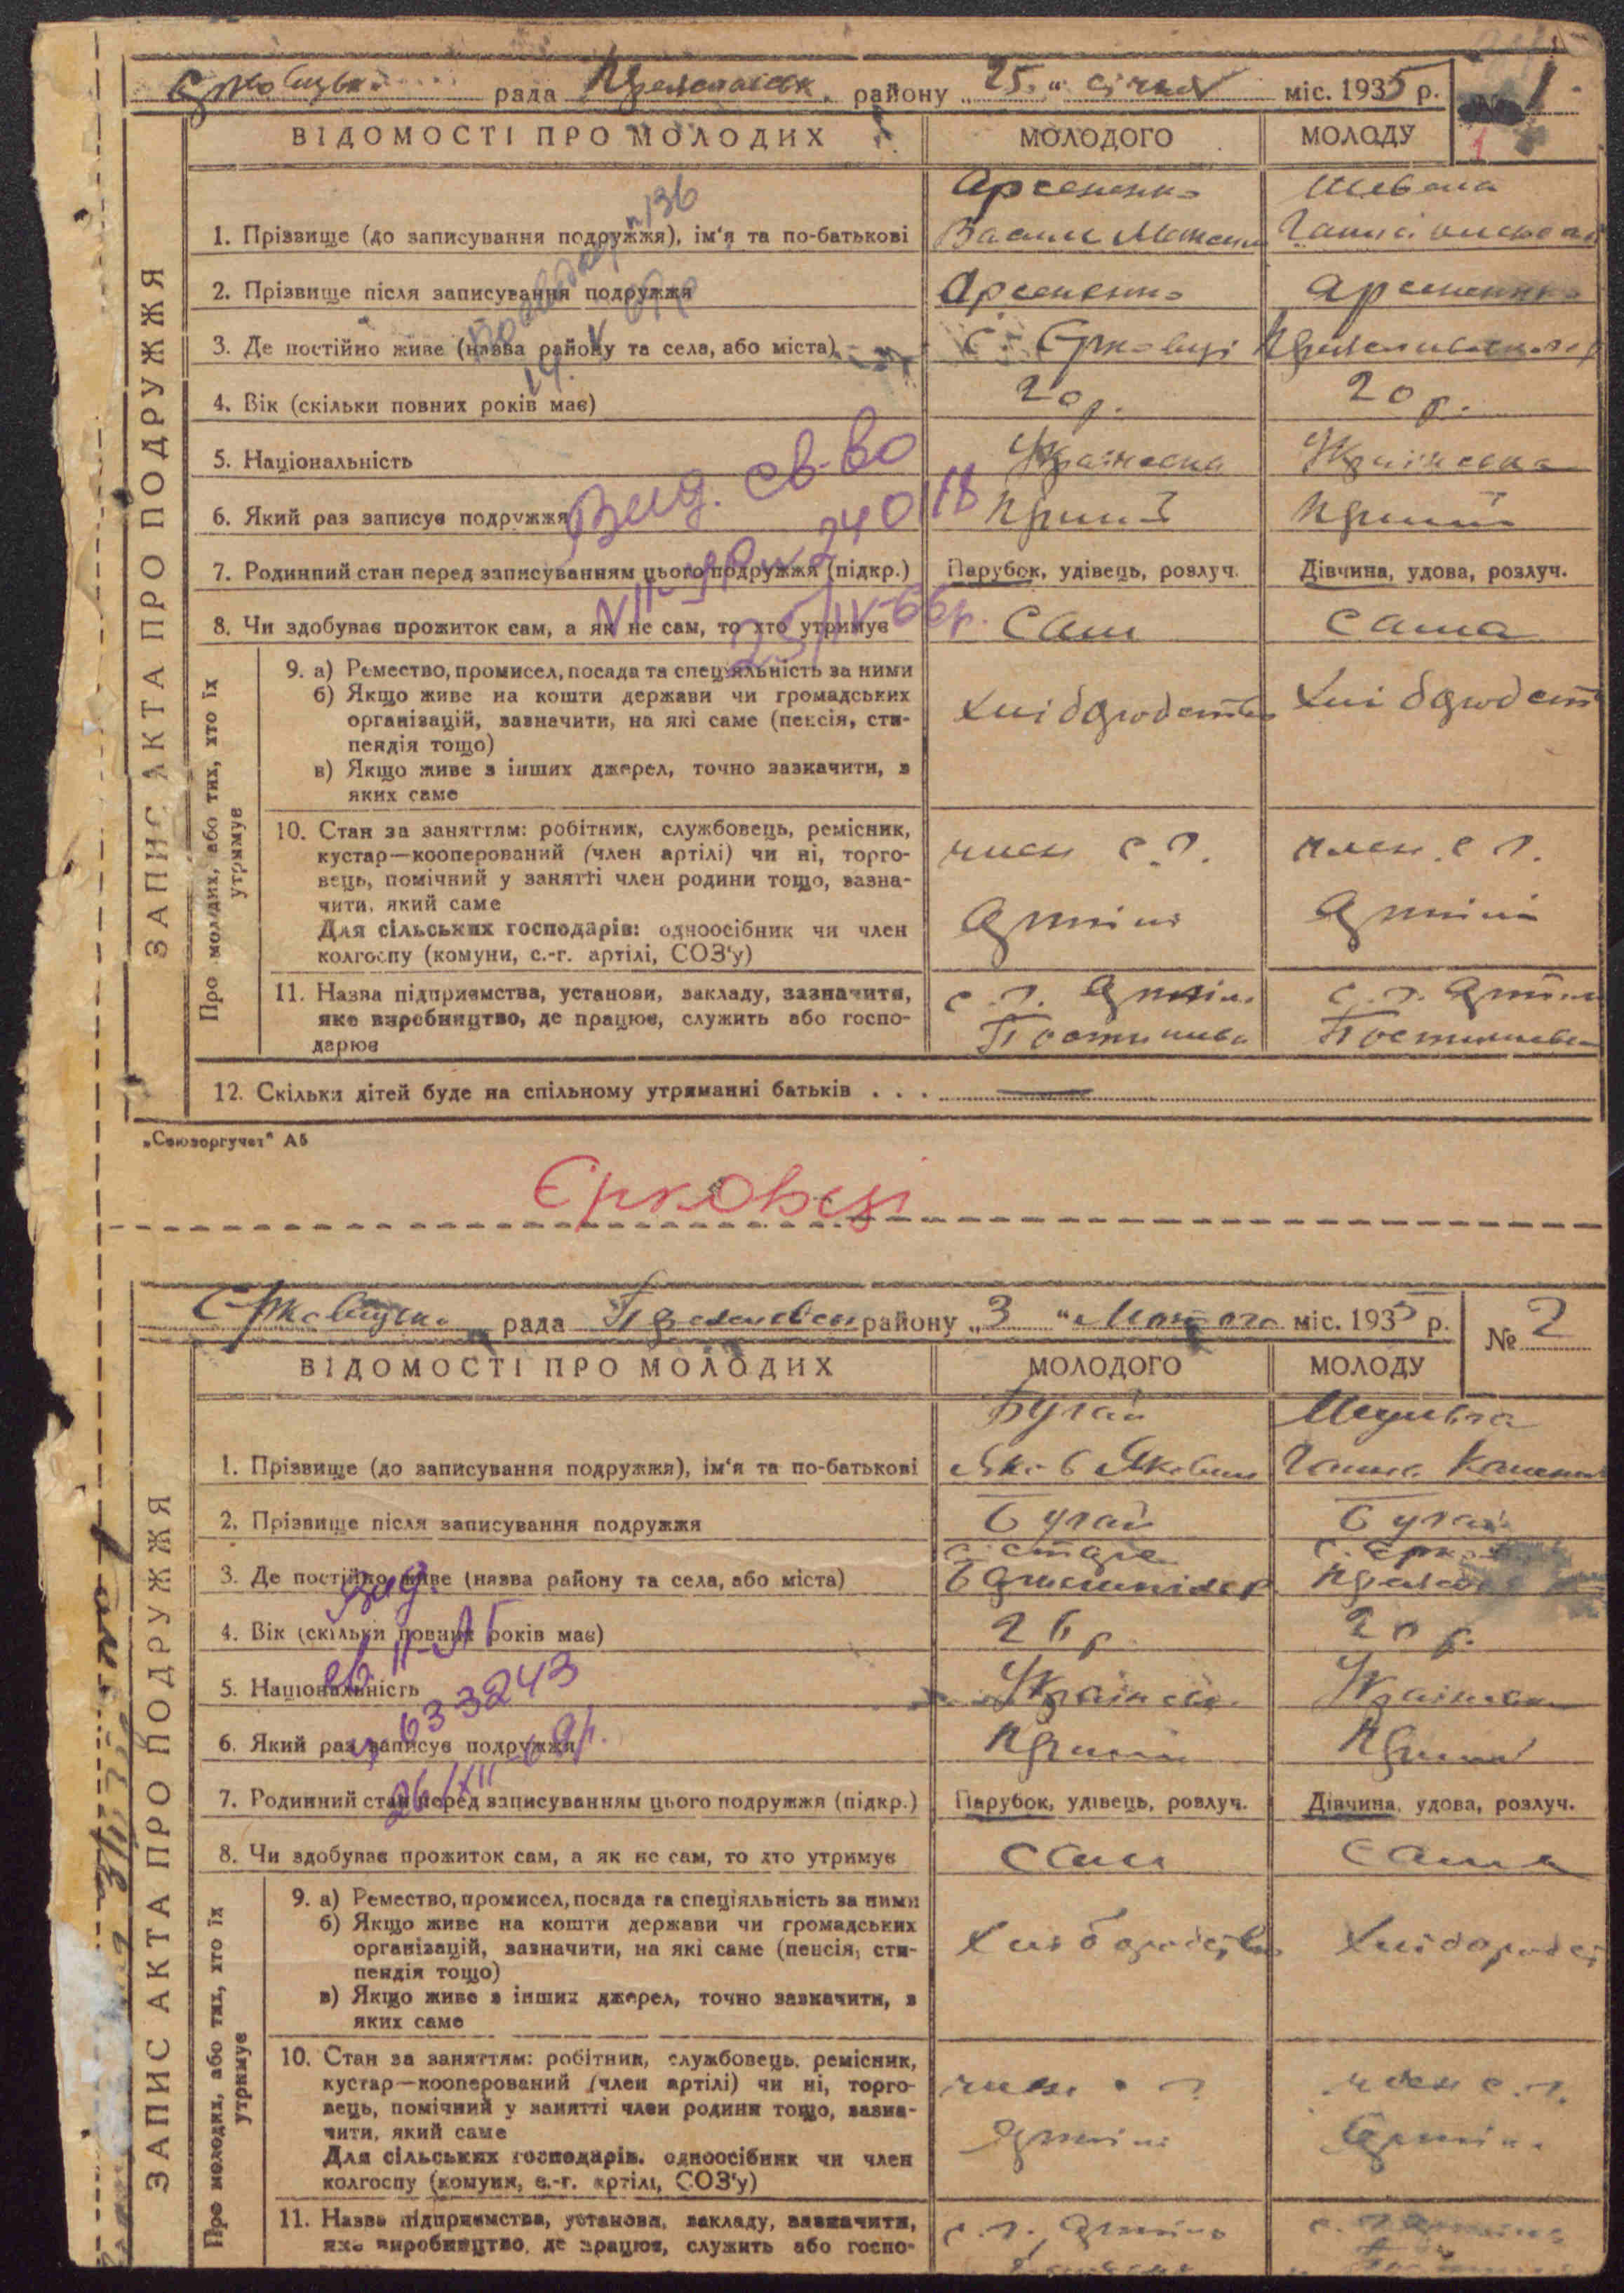 рада району „25“ січня міс. 1935 р. № 1
ВІДОМОСТІ ПРО МОЛОДИХ МОЛОДОГО МОЛОДУ
1
ЗАПИС АКТА ПРО ПОДРУЖЖЯ
Арсененко
1. Прізвище (до записування подружжя), ім'я та по-батькові Василь Ганна
2. Прізвище після записування подружжя Арсененко Арсененко
3. Де постійно живе (назва району та села, або міста) с. Єрковці
4. Вік (скільки повних років має) 20 р. 20 р.
5. Національність Українська Українська
6. Який раз записує подружжя Перший Перший
7. Родинний стан перед записуванням цього подружжя (підкр.) Парубок, удівець, розлуч. Дівчина, удова, розлуч.
8. Чи здобуває прожиток сам, а як не сам, то хто утримує сам сама
Вид. св-во
25/IV-66р.
Про молодих, або тих, хто їх утримує
9. а) Ремество, промисел, посада та спеціяльність за ними
б) Якщо живе на кошти держави чи громадських
організацій, зазначити, на які саме (пенсія, сти-
пендія тощо)
в) Якщо живе з інших джерел, точно зазначити, з
яких саме
Хліборобство Хліборобст
10. Стан за заняттям: робітник, службовець, ремісник,
кустар—кооперований (член артілі) чи ні, торго-
вець, помічний у занятті член родини тощо, зазна-
чити, який саме
Для сільських господарів: одноосібник чи член
колгоспу (комуни, с.-г. артілі, СОЗ'у)
член с.г. член с.г.
Артілі Артілі
11. Назва підприємства, установи, закладу, зазначите,
яке виробництво, де працює, служить або госпо-
дарює
с.г. Артіль с.г. Артіль
Постишева Постишева
12. Скільки дітей буде на спільному утриманні батьків . . .
„Союзоргучет“ А5
Єрковці
рада району „3“ Лютого міс. 1935 р. № 2
ВІДОМОСТІ ПРО МОЛОДИХ МОЛОДОГО МОЛОДУ
ЗАПИС АКТА ПРО ПОДРУЖЖЯ
Бугай
1. Прізвище (до записування подружжя), ім'я та по-батькові Яків Якович Ганна
2. Прізвище після записування подружжя Бугай Бугай
3. Де постійно живе (назва району та села, або міста) с. Старе
4. Вік (скільки повних років має) 26 р. 20 р.
5. Національність Українська Українська
6. Який раз записує подружжя Перший Перший
7. Родинний стан перед записуванням цього подружжя (підкр.) Парубок, удівець, розлуч. Дівчина, удова, розлуч.
8. Чи здобуває прожиток сам, а як не сам, то хто утримує сам сама
Вид.
св II-АГ
633243
Про молодих, або тих, хто їх утримує
9. а) Ремество, промисел, посада та спеціяльність за ними
б) Якщо живе на кошти держави чи громадських
організацій, зазначити, на які саме (пенсія, сти-
пендія тощо)
в) Якщо живе з інших джерел, точно зазначити, з
яких саме
Хліборобство
10. Стан за заняттям: робітник, службовець, ремісник,
кустар—кооперований (член артілі) чи ні, торго-
вець, помічний у занятті член родини тощо, зазна-
чити, який саме
Для сільських господарів: одноосібник чи член
колгоспу (комуни, с.-г. артілі, СОЗ'у)
член с.г. член с.г.
Артілі Артілі
11. Назва підприємства, установи, закладу, зазначити,
яке виробництво, де працює, служить або госпо-
с.г. Артіль с.г. Артіль